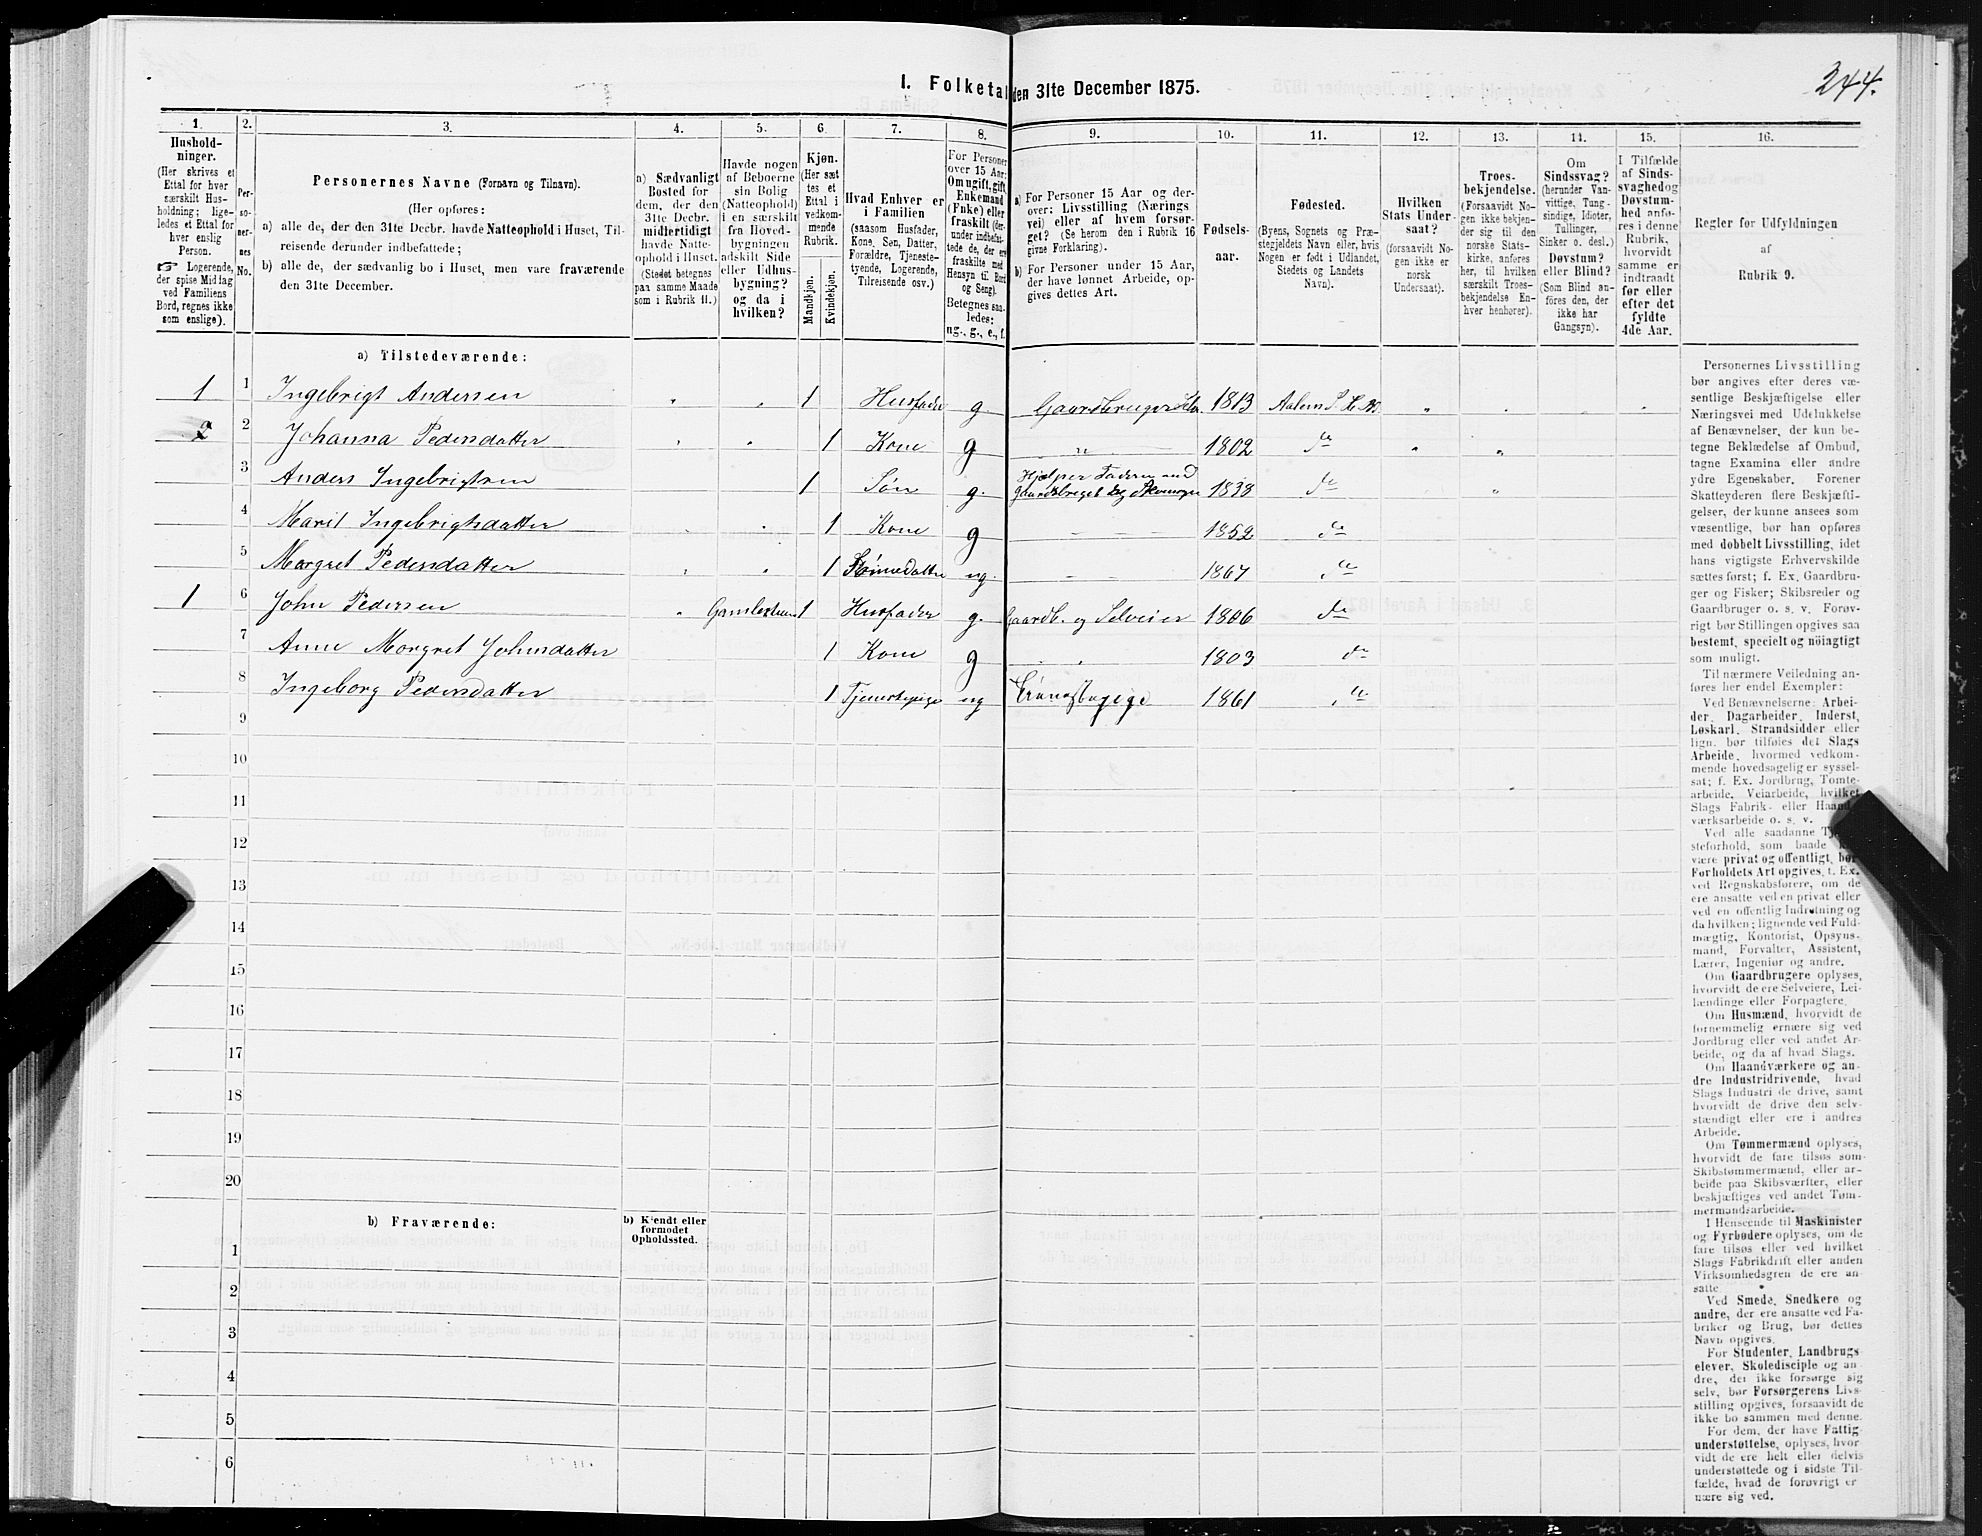 244.
I. Folketal den 31te December 1875.
1. 2. 3. 4. 5. 6. 7. 8. 9. 10. 11. 12. 13. 14. 15. 16.
Hushold-
ninger.
(Her skrives et
Ettal for hver
særskilt Hus-
holdning; lige-
ledes et Ettal for
hver enslig
Person.
☞ Logerende,
der spise Middag
ved Familiens
Bord, regnes ikke
som enslige).
Per-
so-
ner-
nes
No.
Personernes Navne (Fornavn og Tilnavn).
(Her opføres:
a) alle de, der den 31te Decbr. havde Natteophold i Huset, Til-
reisende derunder indbefattede;
b) alle de, der sædvanlig bo i Huset, men vare fraværende
den 31te December.
a) Sædvanligt
Bosted for
dem, der den
31te Decbr.
midlertidigt
havde Natte-
ophold i Huset.
(Stedet betegnes
paa samme Maade
som i Rubrik 11.)
Havde nogen
af Beboerne
sin Bolig
(Natteophold)
i en særskilt
fra Hoved-
bygningen
adskilt Side
eller Udhus-
bygning?
og da i
hvilken?
Kjøn.
(Her sæt
tes et
Ettal i
vedkom-
mende
Rubrik.
Mandkjøn.
Kvindekjøn.
Hvad Enhver er
i Familien
(saasom Husfader,
Kone, Søn, Datter,
Forældre, Tjeneste-
tyende, Logerende,
Tilreisende osv.)
For Personer
over 15 Aar:
Om ugift, gift,
Enkemand
(Enke) eller
fraskilt (der-
under indbefat-
tede de, der ere
fraskilte med
Hensyn til Bord
og Seng).
Betegnes saa-
ledes:
ug., g., e., f.
a) For Personer 15 Aar og der-
over: Livsstilling (Nærings
vei) eller af hvem forsør-
get? (Se herom den i Rubrik 16
givne Forklaring).
b) For Personer under 15 Aar,
der have lønnet Arbeide, op-
gives dettes Art.
Fødsels-
aar.
Fødested.
(Byens, Sognets og Præ-
stegjeldets Navn eller, hvis
Nogen er født i Udlandet,
Stedets og Landets
Navn).
Hvilken
Stats Under-
saat?
(forsaavidt No-
gen ikke er
norsk
Undersaat).
Troes-
bekjendelse.
(Forsaavidt No-
gen ikke bekjen-
der sig til den
norske Stats-
kirke, anføres
her, til hvilken
særskilt Troes-
bekjendelse En-
hver henhører).
Om
Sindssvag?
(herunder Van-
vittige, Tung-
sindige, Idioter,
Tullinger,
Sinker o. desl.)
Døvstum?
eller Blind?
(Som Blind an-
føres den, der
ikke har
Gangsyn).
I Tilfælde
af Sinds-
svaghed og
Døvstum-
hed anfø-
res i denne
Rubrik,
hvorvidt
samme er
indtraadt
før eller
efter det
fyldte
4de Aar.
Regler før Udfyldningen
af
Rubrik 9.
a) Tilstedeværende:
1 1 Ingebrigt Andersen 1 Husfader g. Gaardbruger 1813 Aalen
2 2 Johanna Pedersdatter 1 Kone g 1802 do
3 Anders Ingebrigtsen 1 Søn g. Hjælper Faderen med 1838 do
4 Marit Ingebrigtsdatter 1 Kone g 1852 do
5 Margret Pedersdatter 1 ug. 1867 do
1 6 John Pedersen 1 Husfader g. Gaardb. og Selveier 1806 do
7 Anne Margret Johnsdatter 1 Kone g 1803 do
8 Ingeborg Pedersdatter 1 Tjenestepige ug 1861 do
9
10
11
12
13
14
15
16
17
18
19
20
b) Fraværende:
b) Kjendt eller
formodet
Opholdssted.
1
2
3
4
5
6
Personernes Livsstilling
bør angives efter deres væ-
sentlige Beskjæftigelse eller
Næringsvei med Udelukkelse
af Benævnelser, der kun be-
tegne Beklædelse af Ombud,
tagne Examina eller andre
ydre Egenskaber. Forener
Skatteyderen flere Beskjæfti-
gelser, der kunne ansees som
væsentlige, bør han opføres
med dobbelt Livsstilling, idet
hans vigtigste Erhvervskilde
sættes først; f. Ex. Gaardbru-
ger og Fisker; Skibsreder og
Gaardbruger o. s. v. Forøv-
rigt bør Stillingen opgives saa
bestemt, specielt og nöiagtigt
som muligt.
Til nærmere Veiledning an-
føres her endel Exempler:
Ved Benævnelserne: Arbei-
der, Dagarbeider, Inderst,
Løskarl, Strandsidder eller
lign. bør tilføies det Slags
Arbeide, hvormed vedkom-
mende hovedsagelig er syssel-
sat; f. Ex. Jordbrug, Tomte-
arbeide, Veiarbeide, hvilket
Slags Fabrik- eller Haand-
værksarbeide o. s. v.
Ved alle saadanne
steforhold, som baade
være privat og offentligt, bør
Forholdets Art opgives, f. Ex.
ved Regnskabsførere, om de
ere ansatte ved en privat eller
ved en offentlig Indretning og
da hvilken; lignende ved Fuld-
mægtig, Kontorist, Opsyns-
mand, Forvalter, Assistent,
Lærer, Ingeniør og andre.
Om Gaardbrugere oplyses,
hvorvidt de ere Selveiere, Lei-
lændinge eller Forpagtere.
Om Husmænd, hvorvidt de
fornemmelig ernære sig ved
Jordbrug eller ved andet Ar-
beide, og da af hvad Slags.
Om Haandværkere og an-
dre Industridrivende, hvad
Slags Industri de drive, samt
hvorvidt de drive den selv-
stændigt eller ere i andres
Arbeide.
Om Tømmermænd oplyses,
hvorvidt de fare tilsøs som
Skibstømmermænd, eller ar-
beide paa Skibsværfter, eller
beskjæftiges ved andet Tøm-
mermandsarbeide.
I Henseende til Maskinister
og Fyrbødere oplyses, om de
fare tilsøs eller ved hvilket
Slags Fabrikdrift eller anden
Virksomhedsgren de ere an-
satte.
Ved Smede, Snedkere og
andre, der ere ansatte ved Fa-
briker og Brug, bør dettes
Navn opgives.
For Studenter, Landbrugs
elever, Skoledisciple og an-
dre, der ikke forsørge sig
selv, bør Forsørgerens Livs-
stilling opgives, forsaavidt de
ikke bo sammen med denne.
For dem, der have Fattig-
understøttelse, oplyses, hvor-
vidt de ere helt eller delvis
understøttede og i sidste Til-
fælde, hvad de forøvrigt er-
nære sig ved.